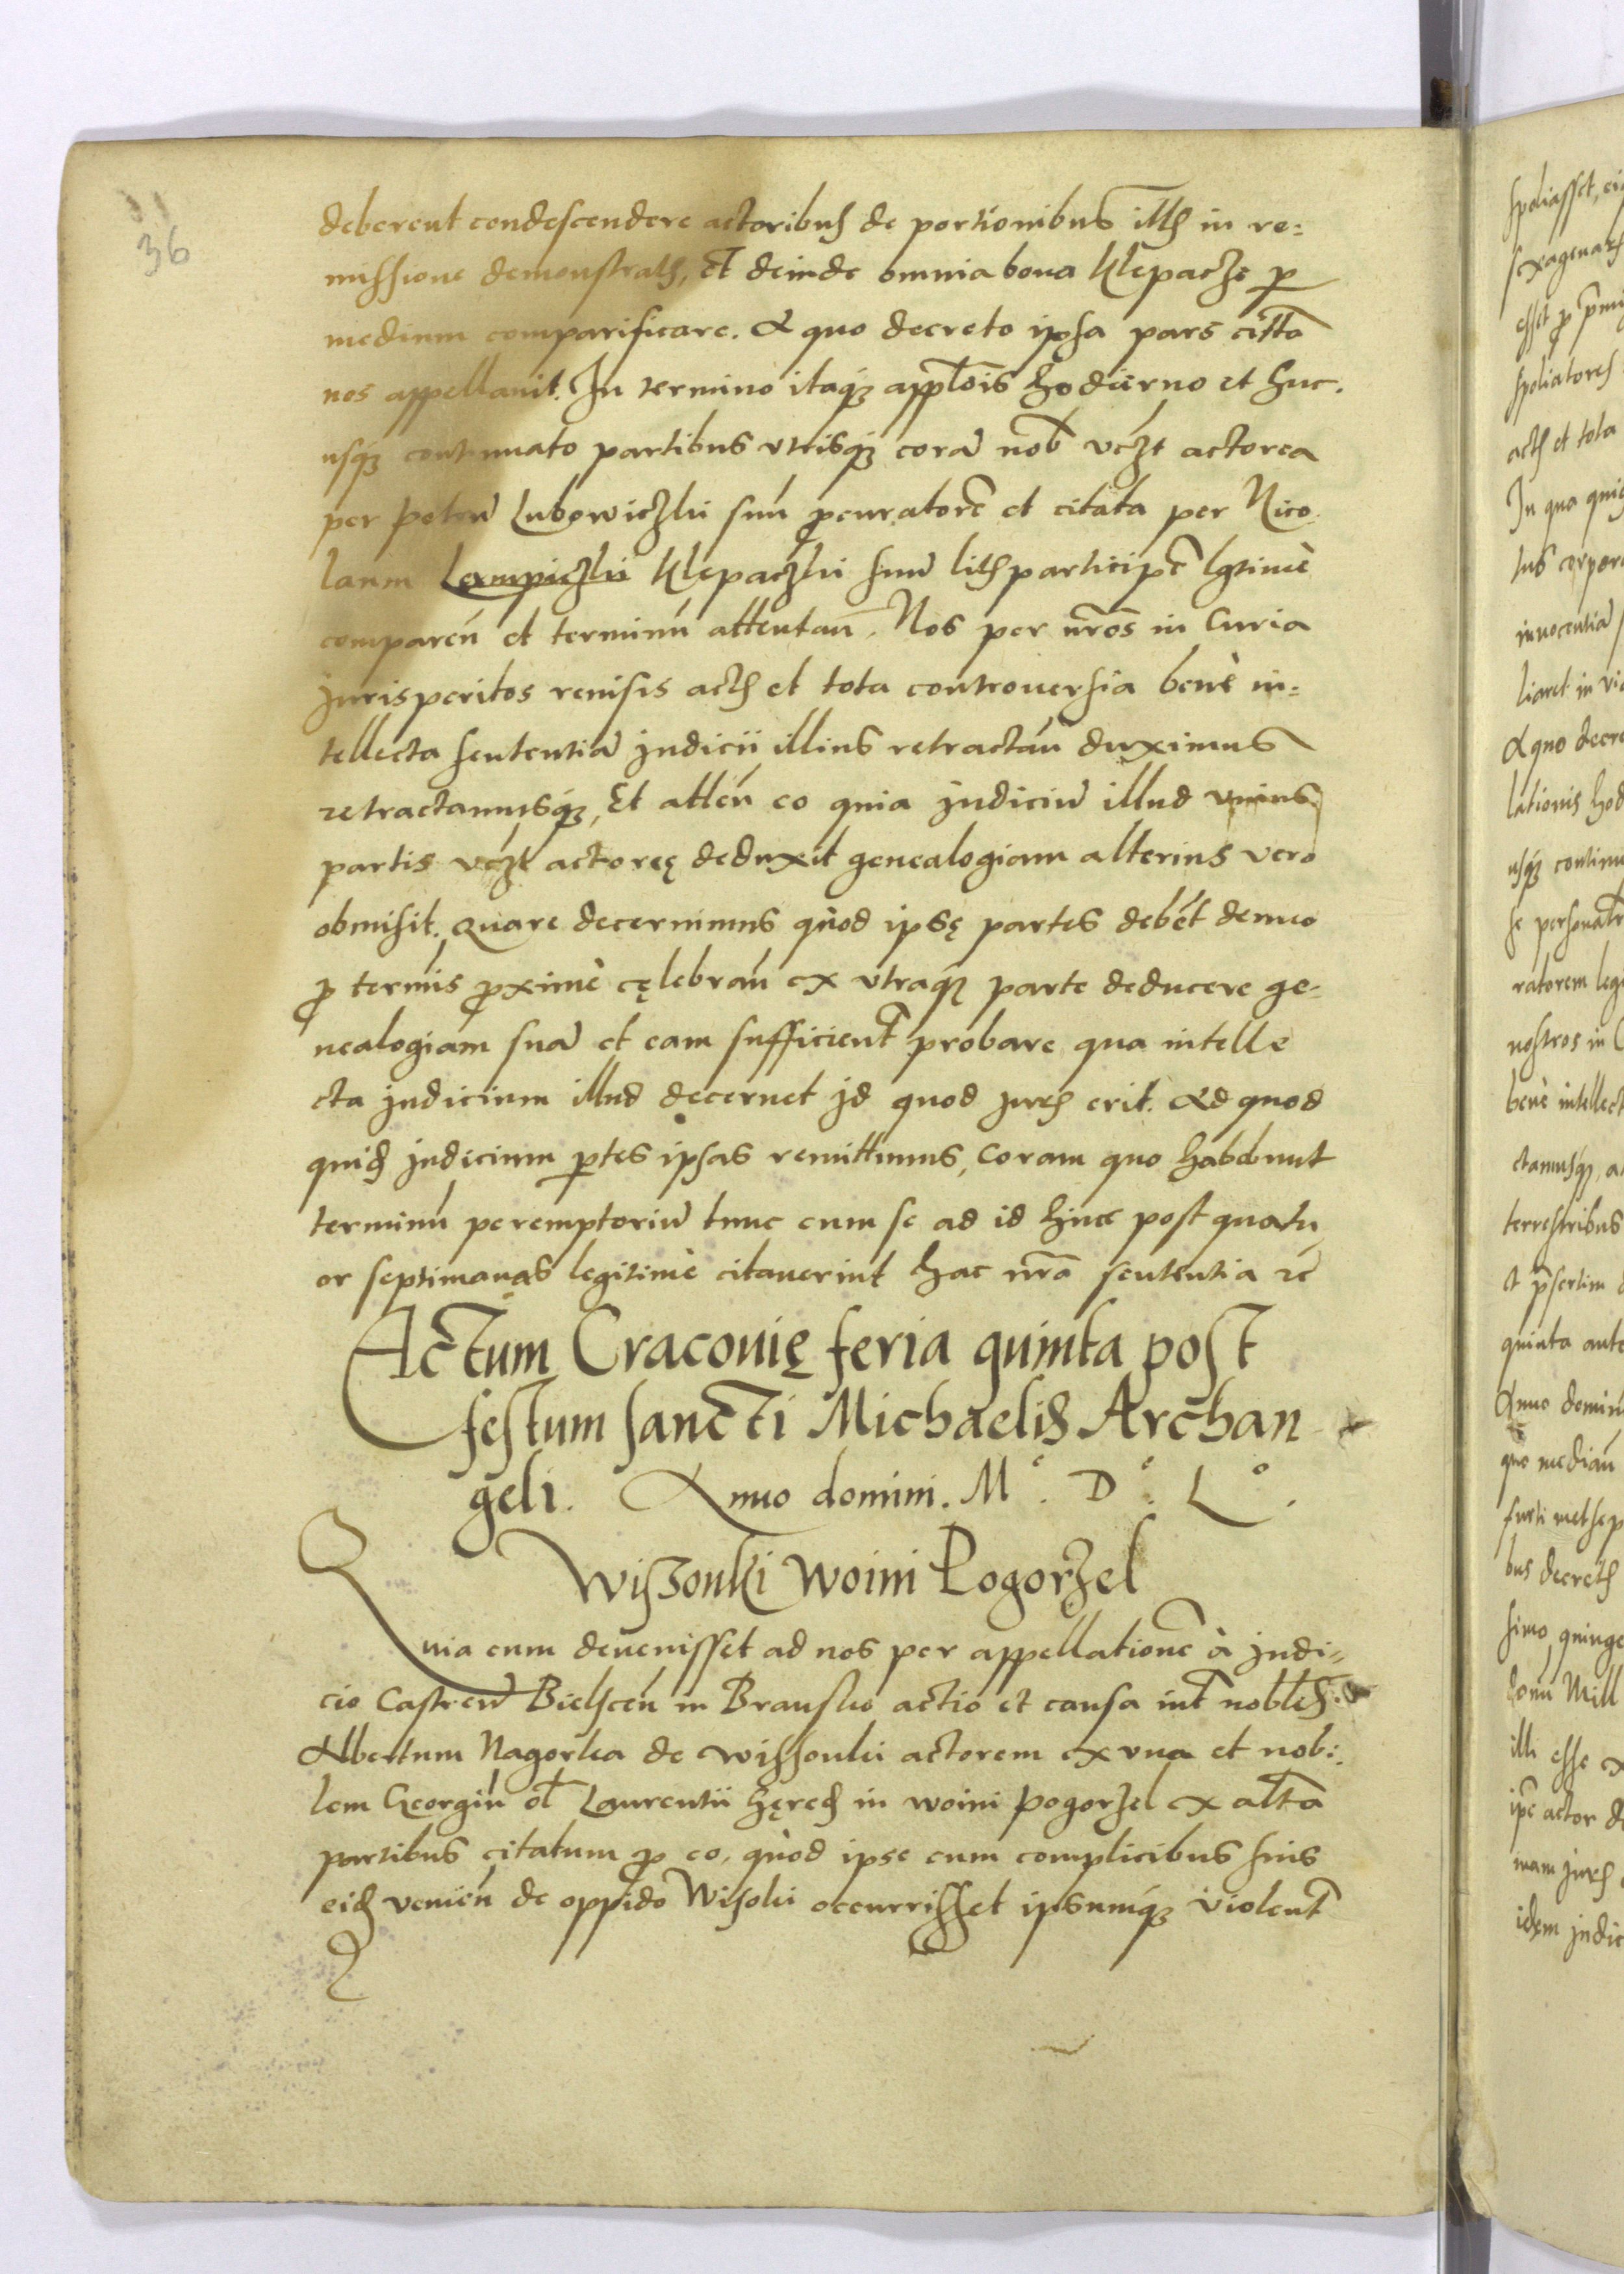 36
deberent condescendere actoribus de portionibus illis in re=
missione demonstratis, et deinde omnia bona Klepacze p
medium comparificare. A quo decreto ipsa pars citta
nos appellavit. In termino itaq3 applois hodierno et huc.
usq3 continuato partibus utrisq3 corā nob vczt actorea
per petrū Lubowiczki suū pcuratorē et citata per Nico
laum Lampiczki Klepaczki suū litis participē lgtimè
comparēn et terminū attentan. Nos per nros in Curia
Jurisperitos revisis actis et tota controversia benè in=
tellecta sententiā Judicii illius retractan duximus
retractamusq3, Et attēn eo quia Judiciū illud unius
partis vczt actoreę deduxit genealogiam alterius vero
obmisit. Quare decernimus quòd ipsę partes debēt denuo
p termis pximè cęlebran ex utraq3 parte deducere ge=
nealogiam suā et eam sufficient probare qua intelle
cta Judicium illud decernet Jd quod Juris erit. Ad quod
quid Judicium ptes ipsas remittimus, coram quo habebunt
terminū peremptoriū tunc cum se ad id hinc post quatu
or septimanas legitimè citaverint hac nra sententia rē
Actum Cracovię feria quinta post
festum sancti Michaelis Archan
geli. Anno domini. M°. D°. L°.
Wiszonki Woini Pogorzel
Quia cum devenisset ad nos per appellationē à Judi=
cio Castren Bielscēn in Bransko actio et causa int nobles
Albertum Nagorka de Wissonki actorem ex una et nobi.
lem Georgiū ol Laurentii hęred in woini pogorzel ex alta
partibus citatum p eo, quòd ipse cum complicibus suis
eid veniēn de oppido Wisoki occurrisset ipsumq3 violent
spoliasset, ei
sexagenaris
esset p pmi
spoliatores
actis et tota
In qua quid
tus corpora
innocentiā
liaret in
A quo decre
lationis hod
usq3 continu
se personalr
ratorem leg
nostros in C
benè intellect
ctamusq3, a
terrestribus
et psertim
quinta ante
Anno domini
quo median
furti
bus decretis
simo, quinge
Mill
illi esse
ipē actor de
mam Juris
idem Judic